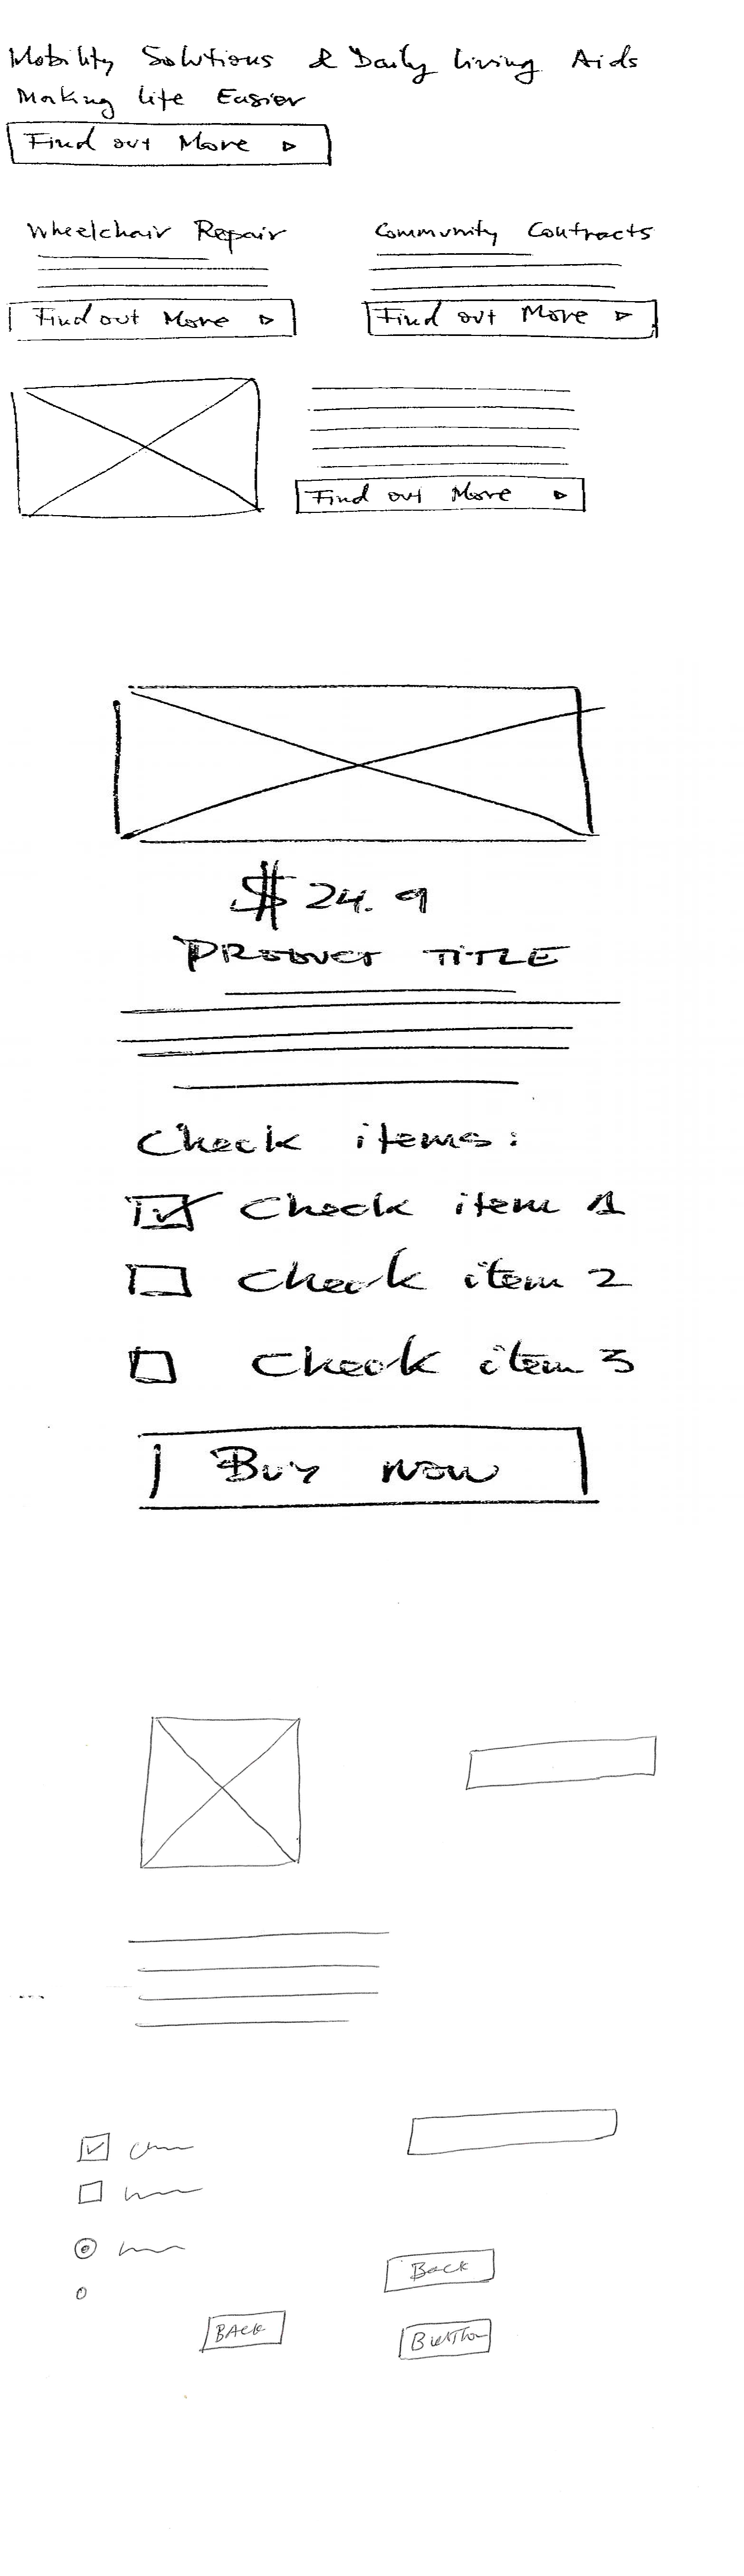 Mobility Solutions & Daily Living Aids
Making life Easier
Find out More
Wheelchair Repair
Community Contracts
Find out More
Find out More
Find out More
$ 24.9
PRODUCT TITLE
Check items:
Check item 1
Check item 2
Check item 3
Buy now
Back
BACK
Button